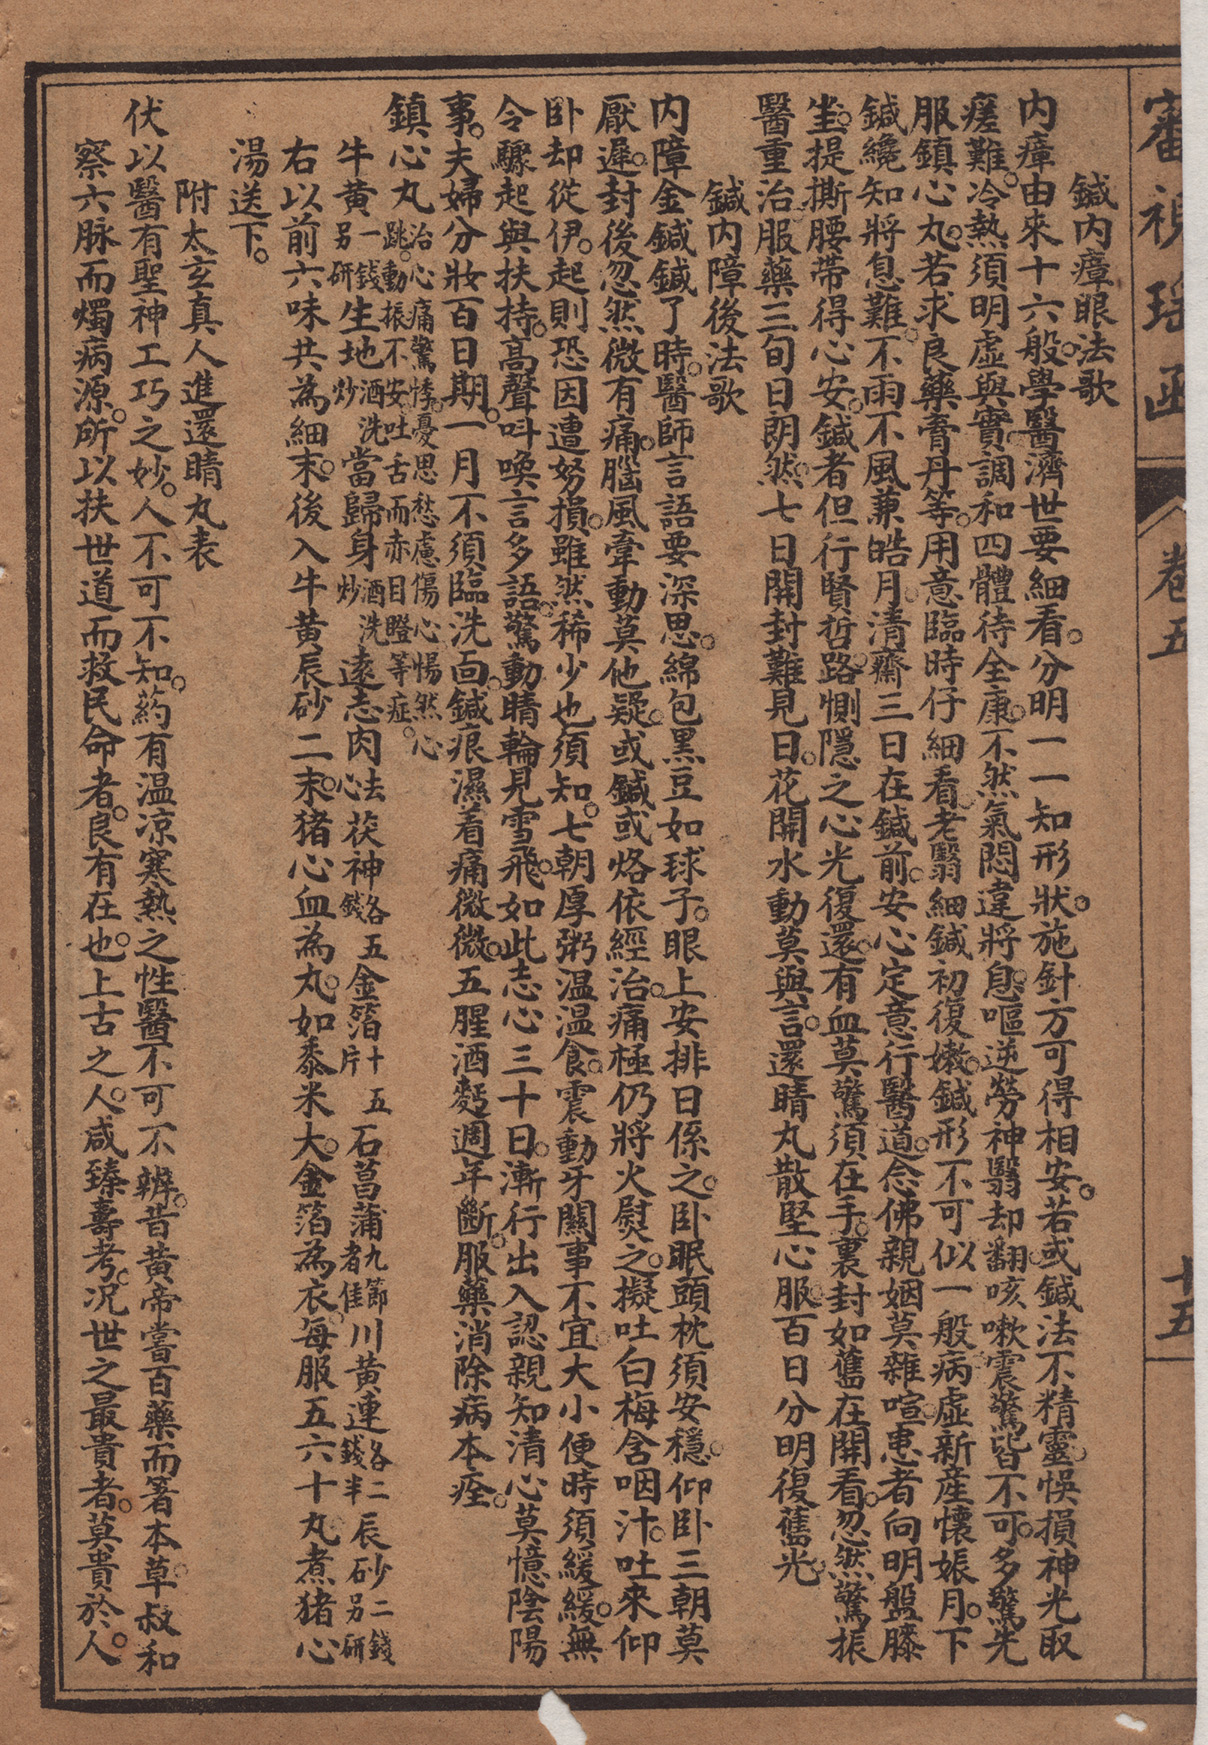 審視瑤函 卷五 十五
鍼內瘴眼法歌
內瘴由來十六般。學醫濟世要細看。分明一一知形狀。施針方可得相安。若或鍼法不精靈。悞損神光取
瘥難。冷熱須明虛與實。調和四體待全康。不然氣悶違將息。嘔逆勞神翳却翻。咳嗽震驚皆不可。多驚先
服鎮心丸。若求良藥膏丹等。用意臨時仔細看。老翳細鍼初復嫩。鍼形不可似一般。病虛新產懷娠月。下
鍼纔知將息難。不雨不風兼皓月。清齋三日在鍼前。安心定意行醫道。念佛親姻莫雜喧。患者向明盤膝
坐。提撕腰帶得心安。鍼者但行賢哲路。惻隱之心光復還。有血莫驚須在手。裹封如舊在開看。忽然驚振
醫重治。服藥三旬日朗然。七日開封難見日。花開水動莫與言。還睛丸散堅心服。百日分明復舊光。
鍼內障後法歌
內障金鍼鍼了時。醫師言語要深思。綿包黑豆如球子。眼上安排日係之。卧眠頭枕須安穩。仰卧三朝莫
厭遲。封後忽然微有痛。腦風牽動莫他疑。或鍼或烙依經治。痛極仍將火熨之。擬吐白梅含咽汁。吐來仰
卧却從伊。起則恐因遭努損。雖然稀少也須知。七朝厚粥温温食。震動牙關事不宜。大小便時須緩緩。無
令驟起與扶持。高聲呌喚言多語。驚動睛輪見雪飛。如此志心三十日。漸行出入認親知。清心莫憶陰陽
事。夫婦分妝百日期。一月不須臨洗面。鍼痕濕着痛微微。五腥酒麪週年斷。服藥消除病本痊。
鎮心丸 治心痛驚悸。憂思愁慮傷心。惕然心跳。動振不安。吐舌而赤目瞪等症。
牛黃一錢另研 生地酒洗炒 當歸身酒洗炒 遠志肉去心 茯神各五錢 金箔十五片 石菖蒲九節者佳 川黃連各二錢半 辰砂二錢另研
右以前六味共為細末。後入牛黃辰砂二末。猪心血為丸。如黍米大。金箔為衣。每服五六十丸。煮猪心
湯送下。
附太玄真人進還睛丸表
伏以醫有聖神工巧之妙。人不可不知。葯有温凉寒熱之性。醫不可不辨。昔黃帝嘗百藥而著本草。叔和
察六脉而燭病源。所以扶世道而救民命者。良有在也。上古之人。咸臻壽考。况世之最貴者。莫貴於人。